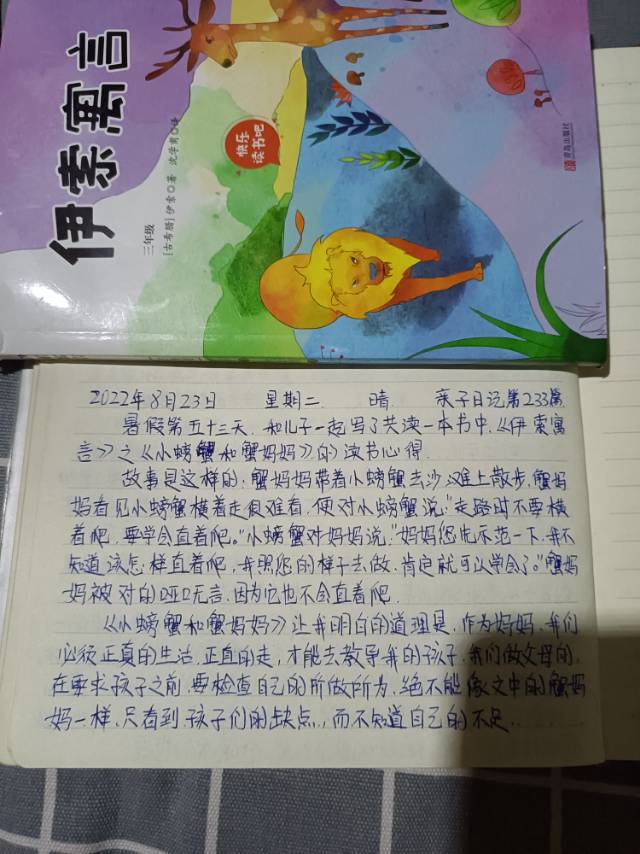 伊索寓言
三年级
[古希腊]伊索◎著 沈学甫◎译
快乐
读书吧
青岛出版社
2022年8月23日 星期二 晴 亲子日记第233篇
暑假第五十三天，和儿子一起写了共读一本书中，《伊索寓
言》之《小螃蟹和蟹妈妈》的读书心得。
故事是这样的：蟹妈妈带着小螃蟹去沙滩上散步，蟹妈
妈看见小螃蟹横着走很难看，便对小螃蟹说："走路时不要横
着爬，要学会直着爬。"小螃蟹对妈妈说："妈妈您先示范一下，我不
知道该怎样直着爬，我照您的样子去做，肯定就可以学会了。"蟹妈
妈被对的哑口无言，因为它也不会直着爬。
《小螃蟹和蟹妈妈》让我明白的道理是，作为妈妈，我们
必须正真的生活，正直的走，才能去教导我的孩子，我们做父母的，
在要求孩子之前，要检查自己的所做所为，绝不能像文中的蟹妈
妈一样，只看到孩子们的缺点，而不知道自己的不足。